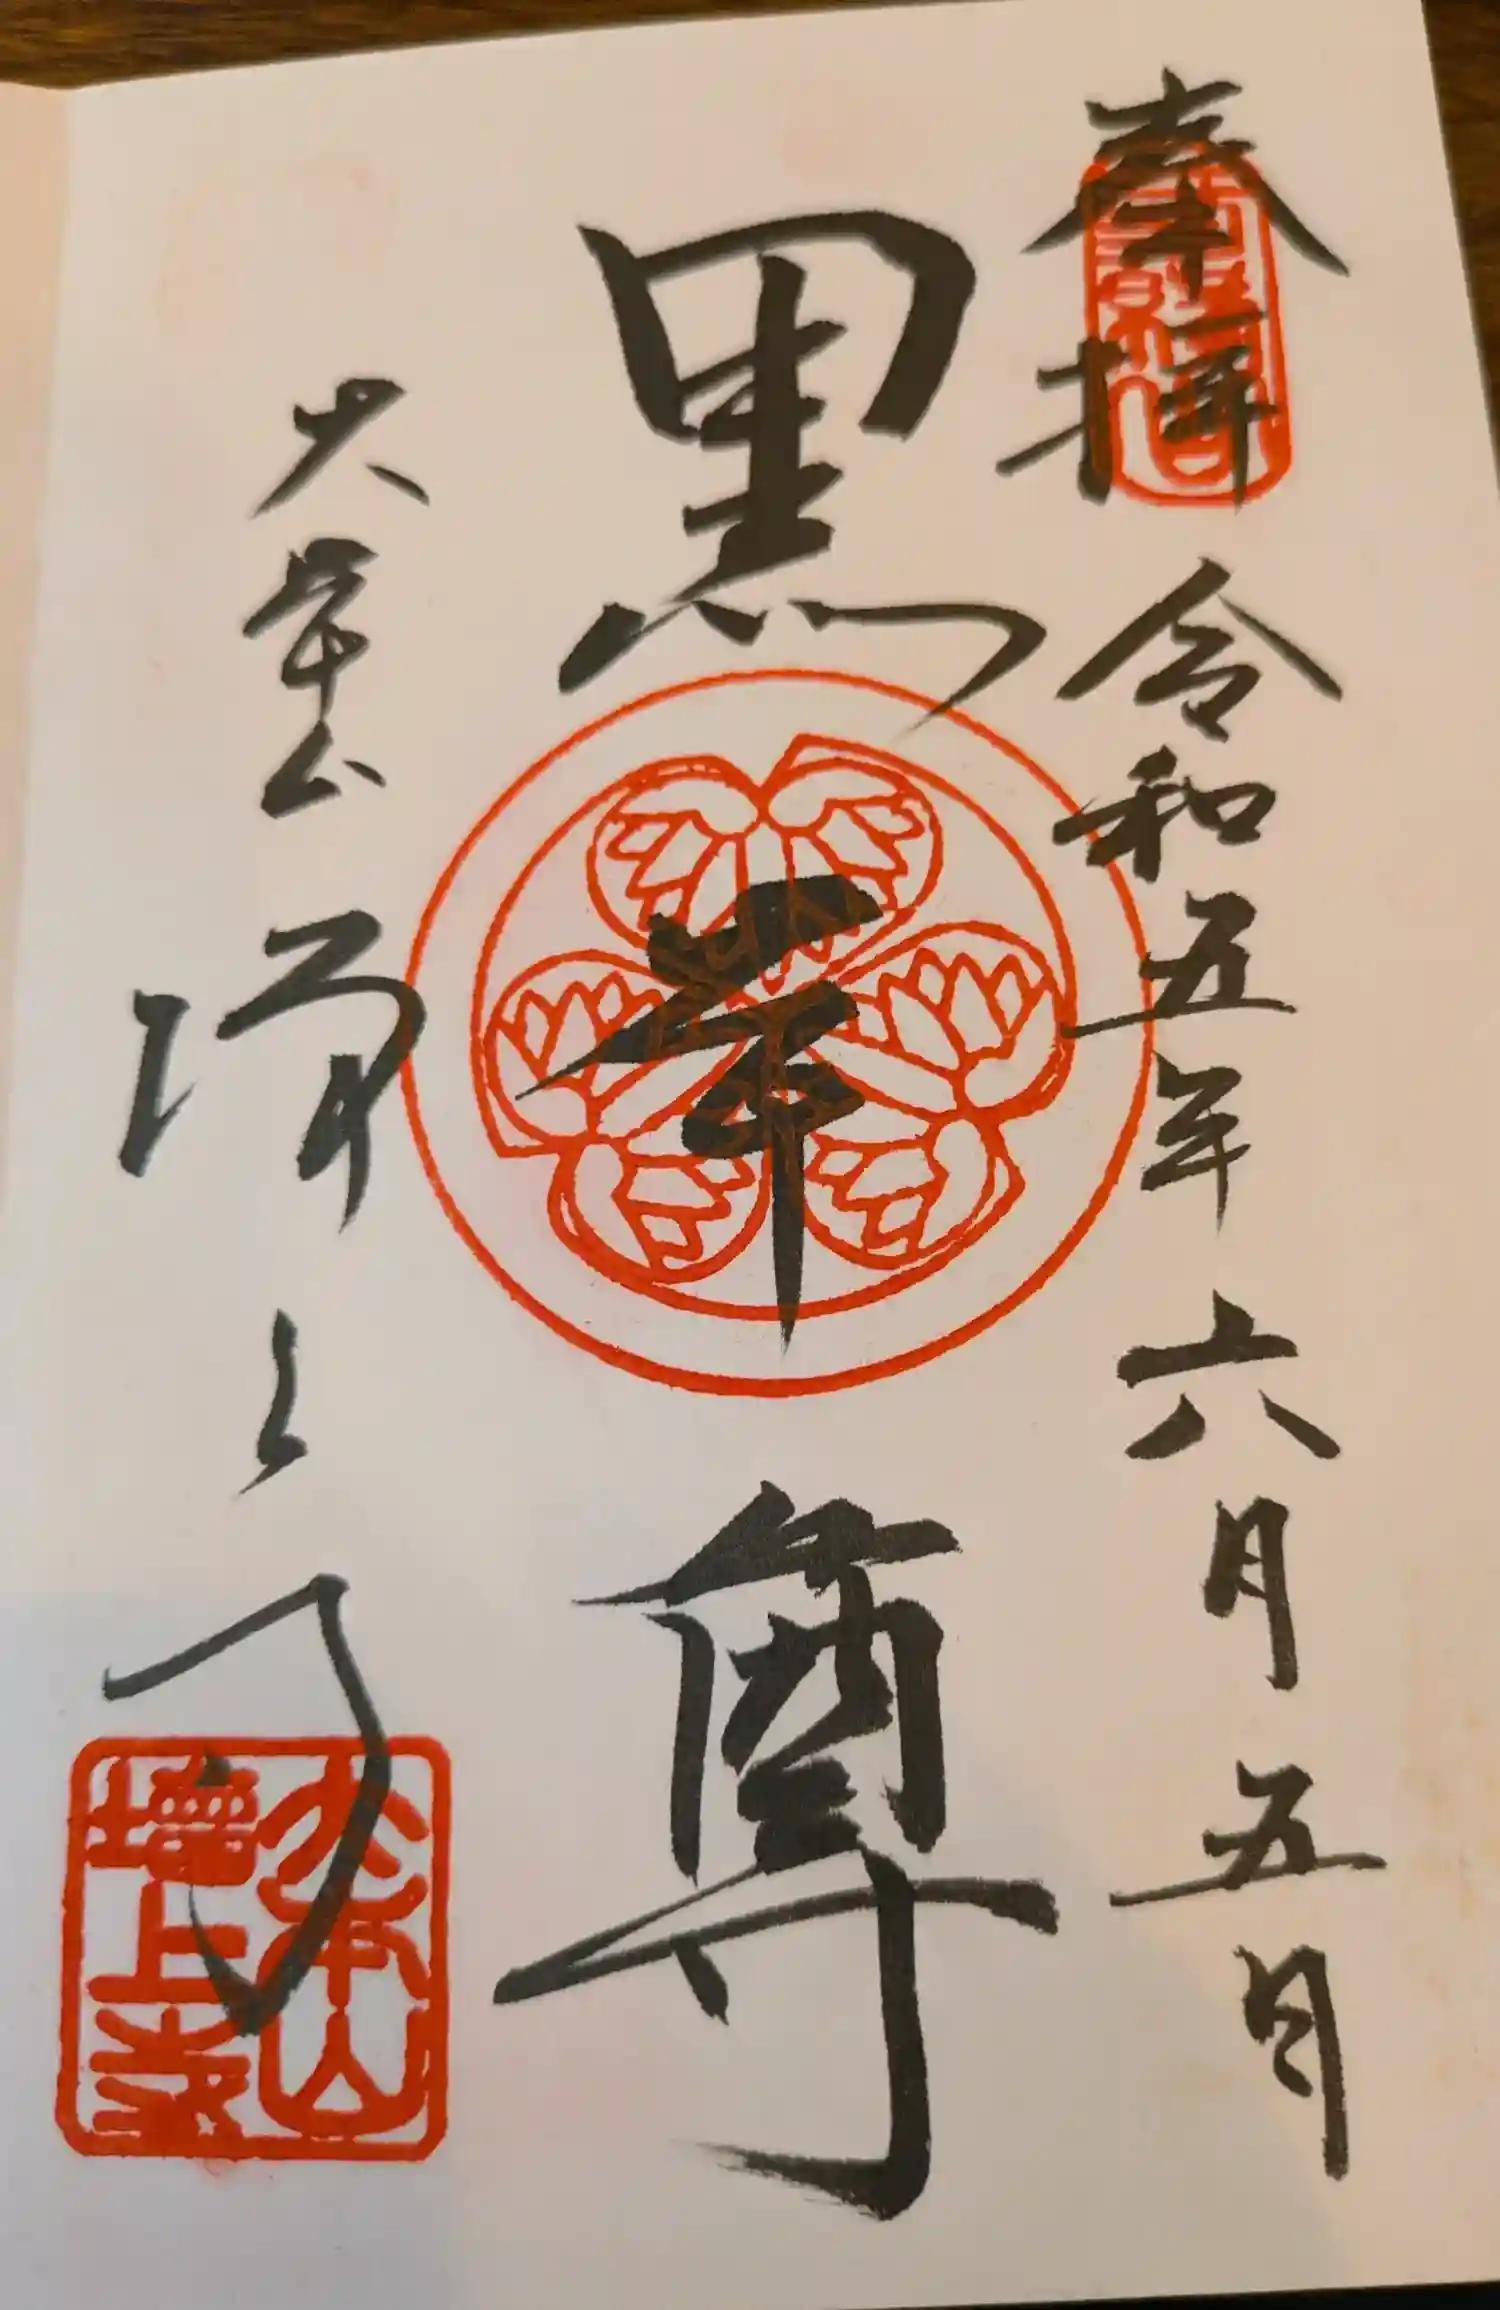 奉拝 令和五年六月五日
黒本尊
大本山 増上寺
大本山
増上寺